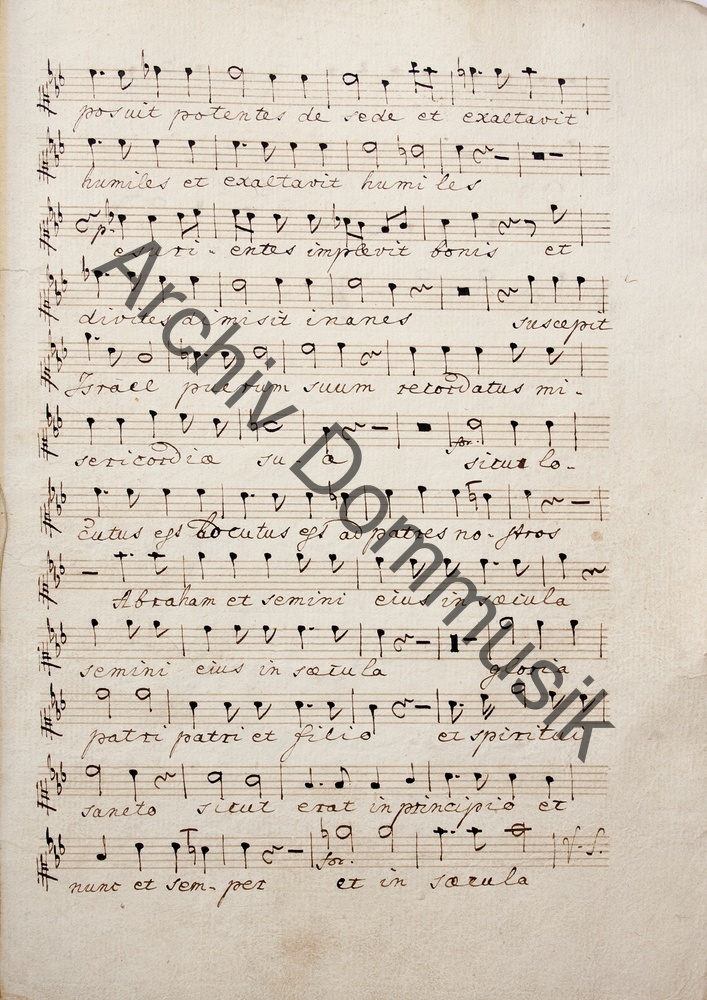 posuit potentes de sede et exaltavit
humiles et exaltavit humi les
p:
esuri - entes implevit bonis et
divites dimisit inanes suscepit
Israel puerum suum recordatus mi -
for:
sericordiæ su æ sicut lo -
cutus est locutus est ad patres no - stros
Abraham et semini eius in sæcula
semini eius in sæcula gloria
patri patri et filio et spiritui
sancto sicut erat in principio et
V. S.
for:
nunc et sem - per et in sæcula
Archiv Dommusik